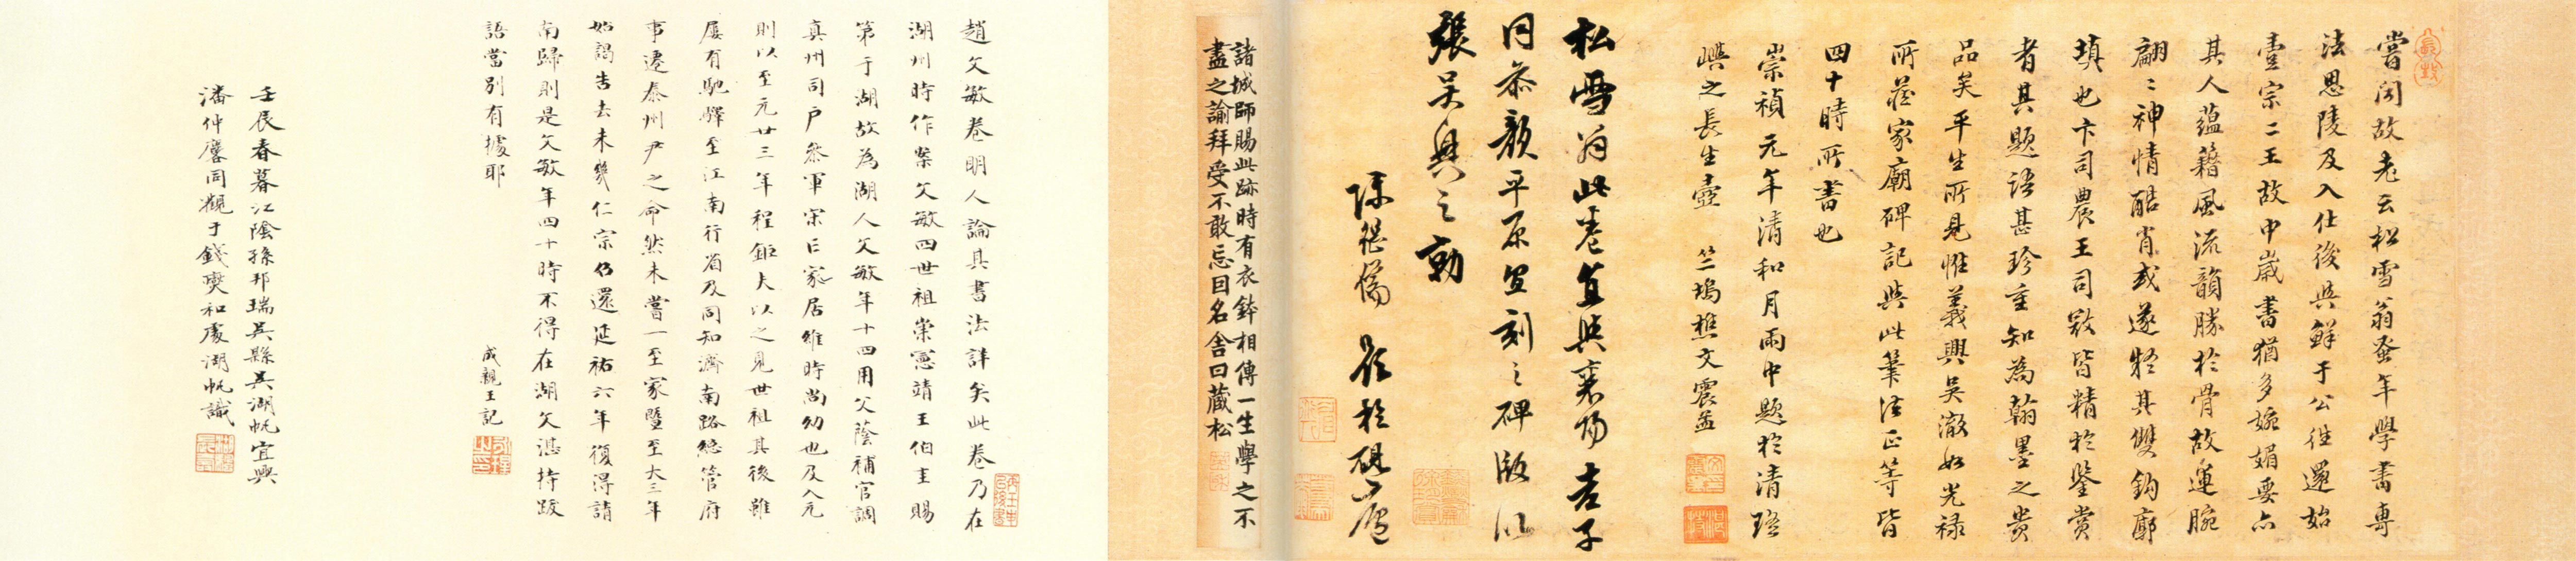 嘗聞故老云松雪翁蚤年學書專
法思陵及入仕後與鮮于公往還始
壹宗二王故中歲書猶多婉媚要亦
其人蘊藉風流韻勝於骨故運腕
翩〻神情酷肖或遂疑其雙鉤廓
填也卞司農王司寇皆精於鑒賞
者其題語甚珍重知為翰墨之貴
品矣平生所見惟義興吳澈如光祿
所藏家廟碑記與此筆法正等皆
四十時所書也
崇禎元年清和月雨中題於清瑤
嶼之長生壺 竺塢樵文震孟
松雪翁此卷宜與襄陽老子
同參顏平原宜刻之碑版以
張吳興之勣
陳繼儒觀於硯廬
諸城師賜此跡時有衣鉢相傳一生學之不
盡之諭拜受不敢忘因名舍曰藏松
趙文敏卷明人論其書法詳矣此卷乃在
湖州時作案文敏四世祖崇憲靖王伯圭賜
第于湖故為湖人文敏年十四用父蔭補官調
真州司戶參軍宋亡家居維時尚幼也及入元
則以至元廿三年程鉅夫以之見世祖其後雖
屢有馳驛至江南行省及同知濟南路總管府
事遷泰州尹之命然未嘗一至家暨至大三年
如謁告去未幾仁宗仍還延祐六年復得請
南歸則是文敏年四十時不得在湖文湛持跋
語當別有據耶
成親王記
壬辰春暮江陰孫邦瑞吳縣吳湖帆宜興
潘仲麐同觀于錢燠和處湖帆識